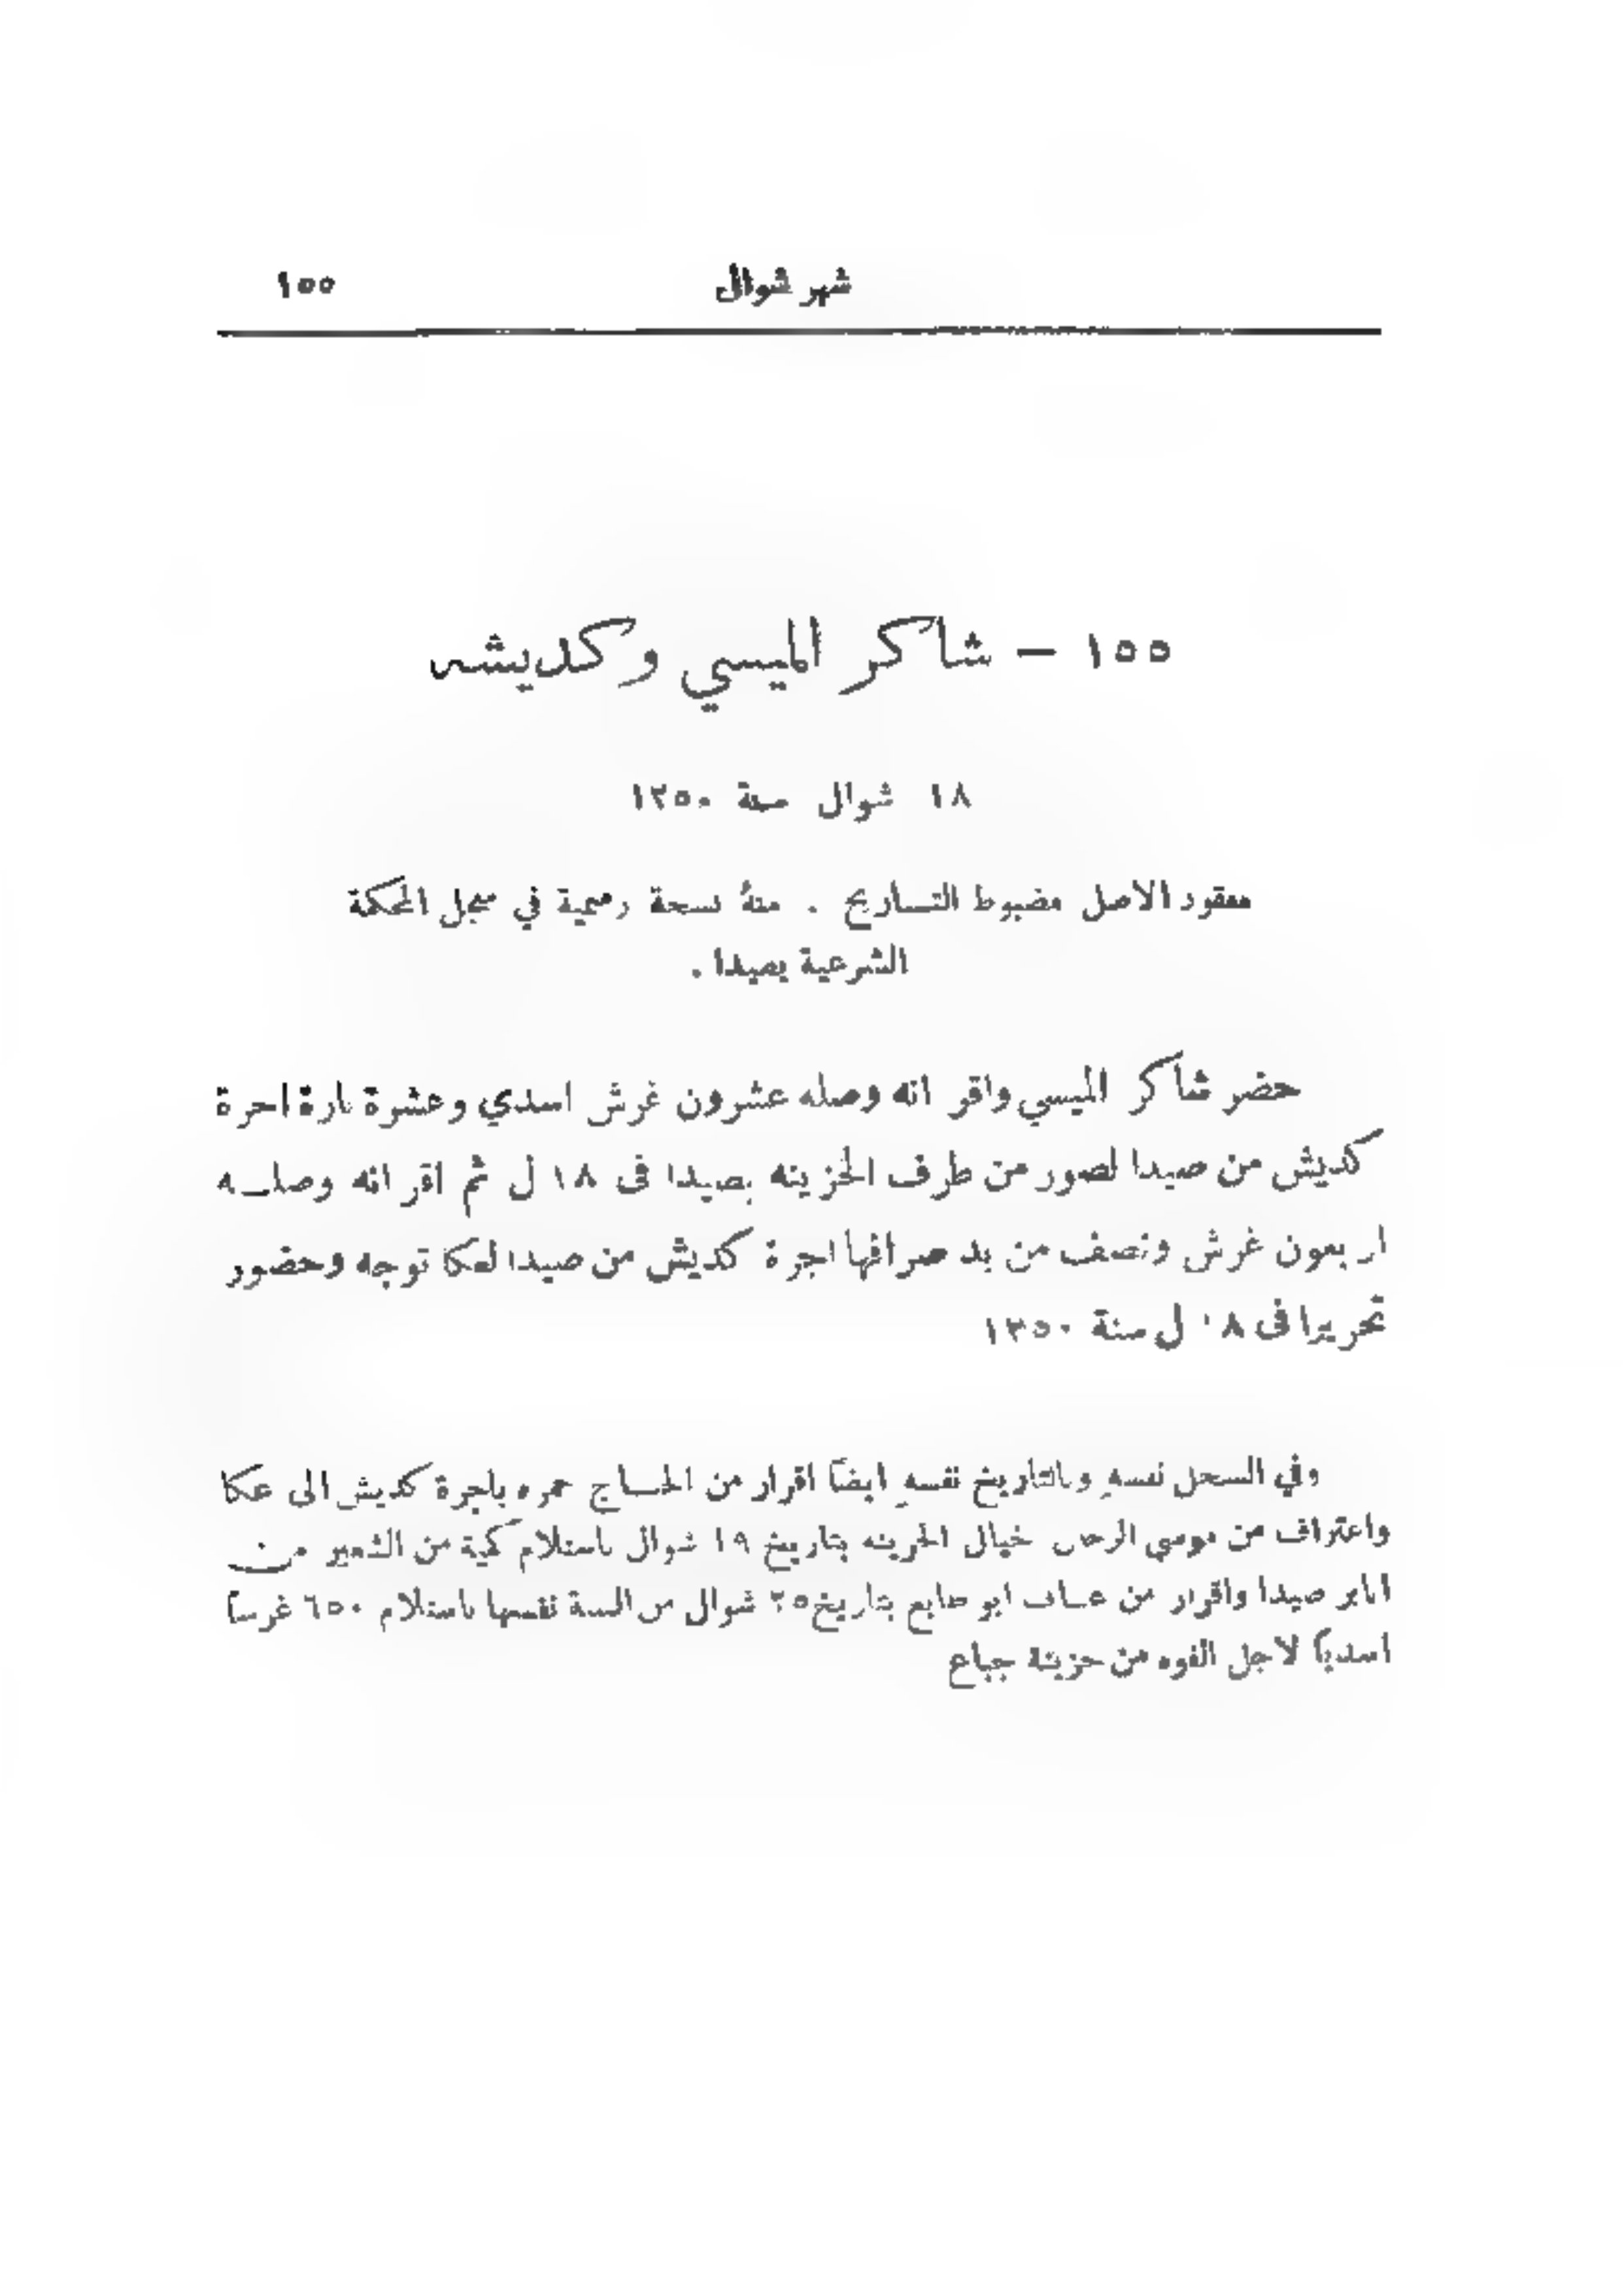 شهر شوال ١٥٥
١٥٥ – شاكر الميسي وكديشه
١٨ شوال سنة ١٢٥٠
مفقود الاصل مضبوط التاريخ . منهُ نسخة رسمية في سجل المحكمة
الشرعية بصيدا .
حضر شاكر الميسي واقر انه وصله عشرون غرش اسدي وعشرة بارة اجرة
كديش من صيدا لصور من طرف الخزينه بصيدا فى ١٨ ل ثم اقر انه وصله
اربعون غرش ونصف من يد صرافها اجرة كديش من صيدا لعكا توجه وحضور
تحريرا فى ١٨ ل سنة ١٢٥٠
وفي السجل نفسهِ وبالتاريخ نفسهِ ايضاً اقرار من الحاج حمره باجرة كديش الى عكا
واعتراف من موسي خيال الخزينه بتاريخ ١٩ شوال باستلام كمية من الشعير من
انابر صيدا واقرار من ابو بتاريخ ٢٥ شوال من السنة نفسها باستلام ٦٥٠ غرشاً
اسدياً لاجل الفوه من خزينة جباع